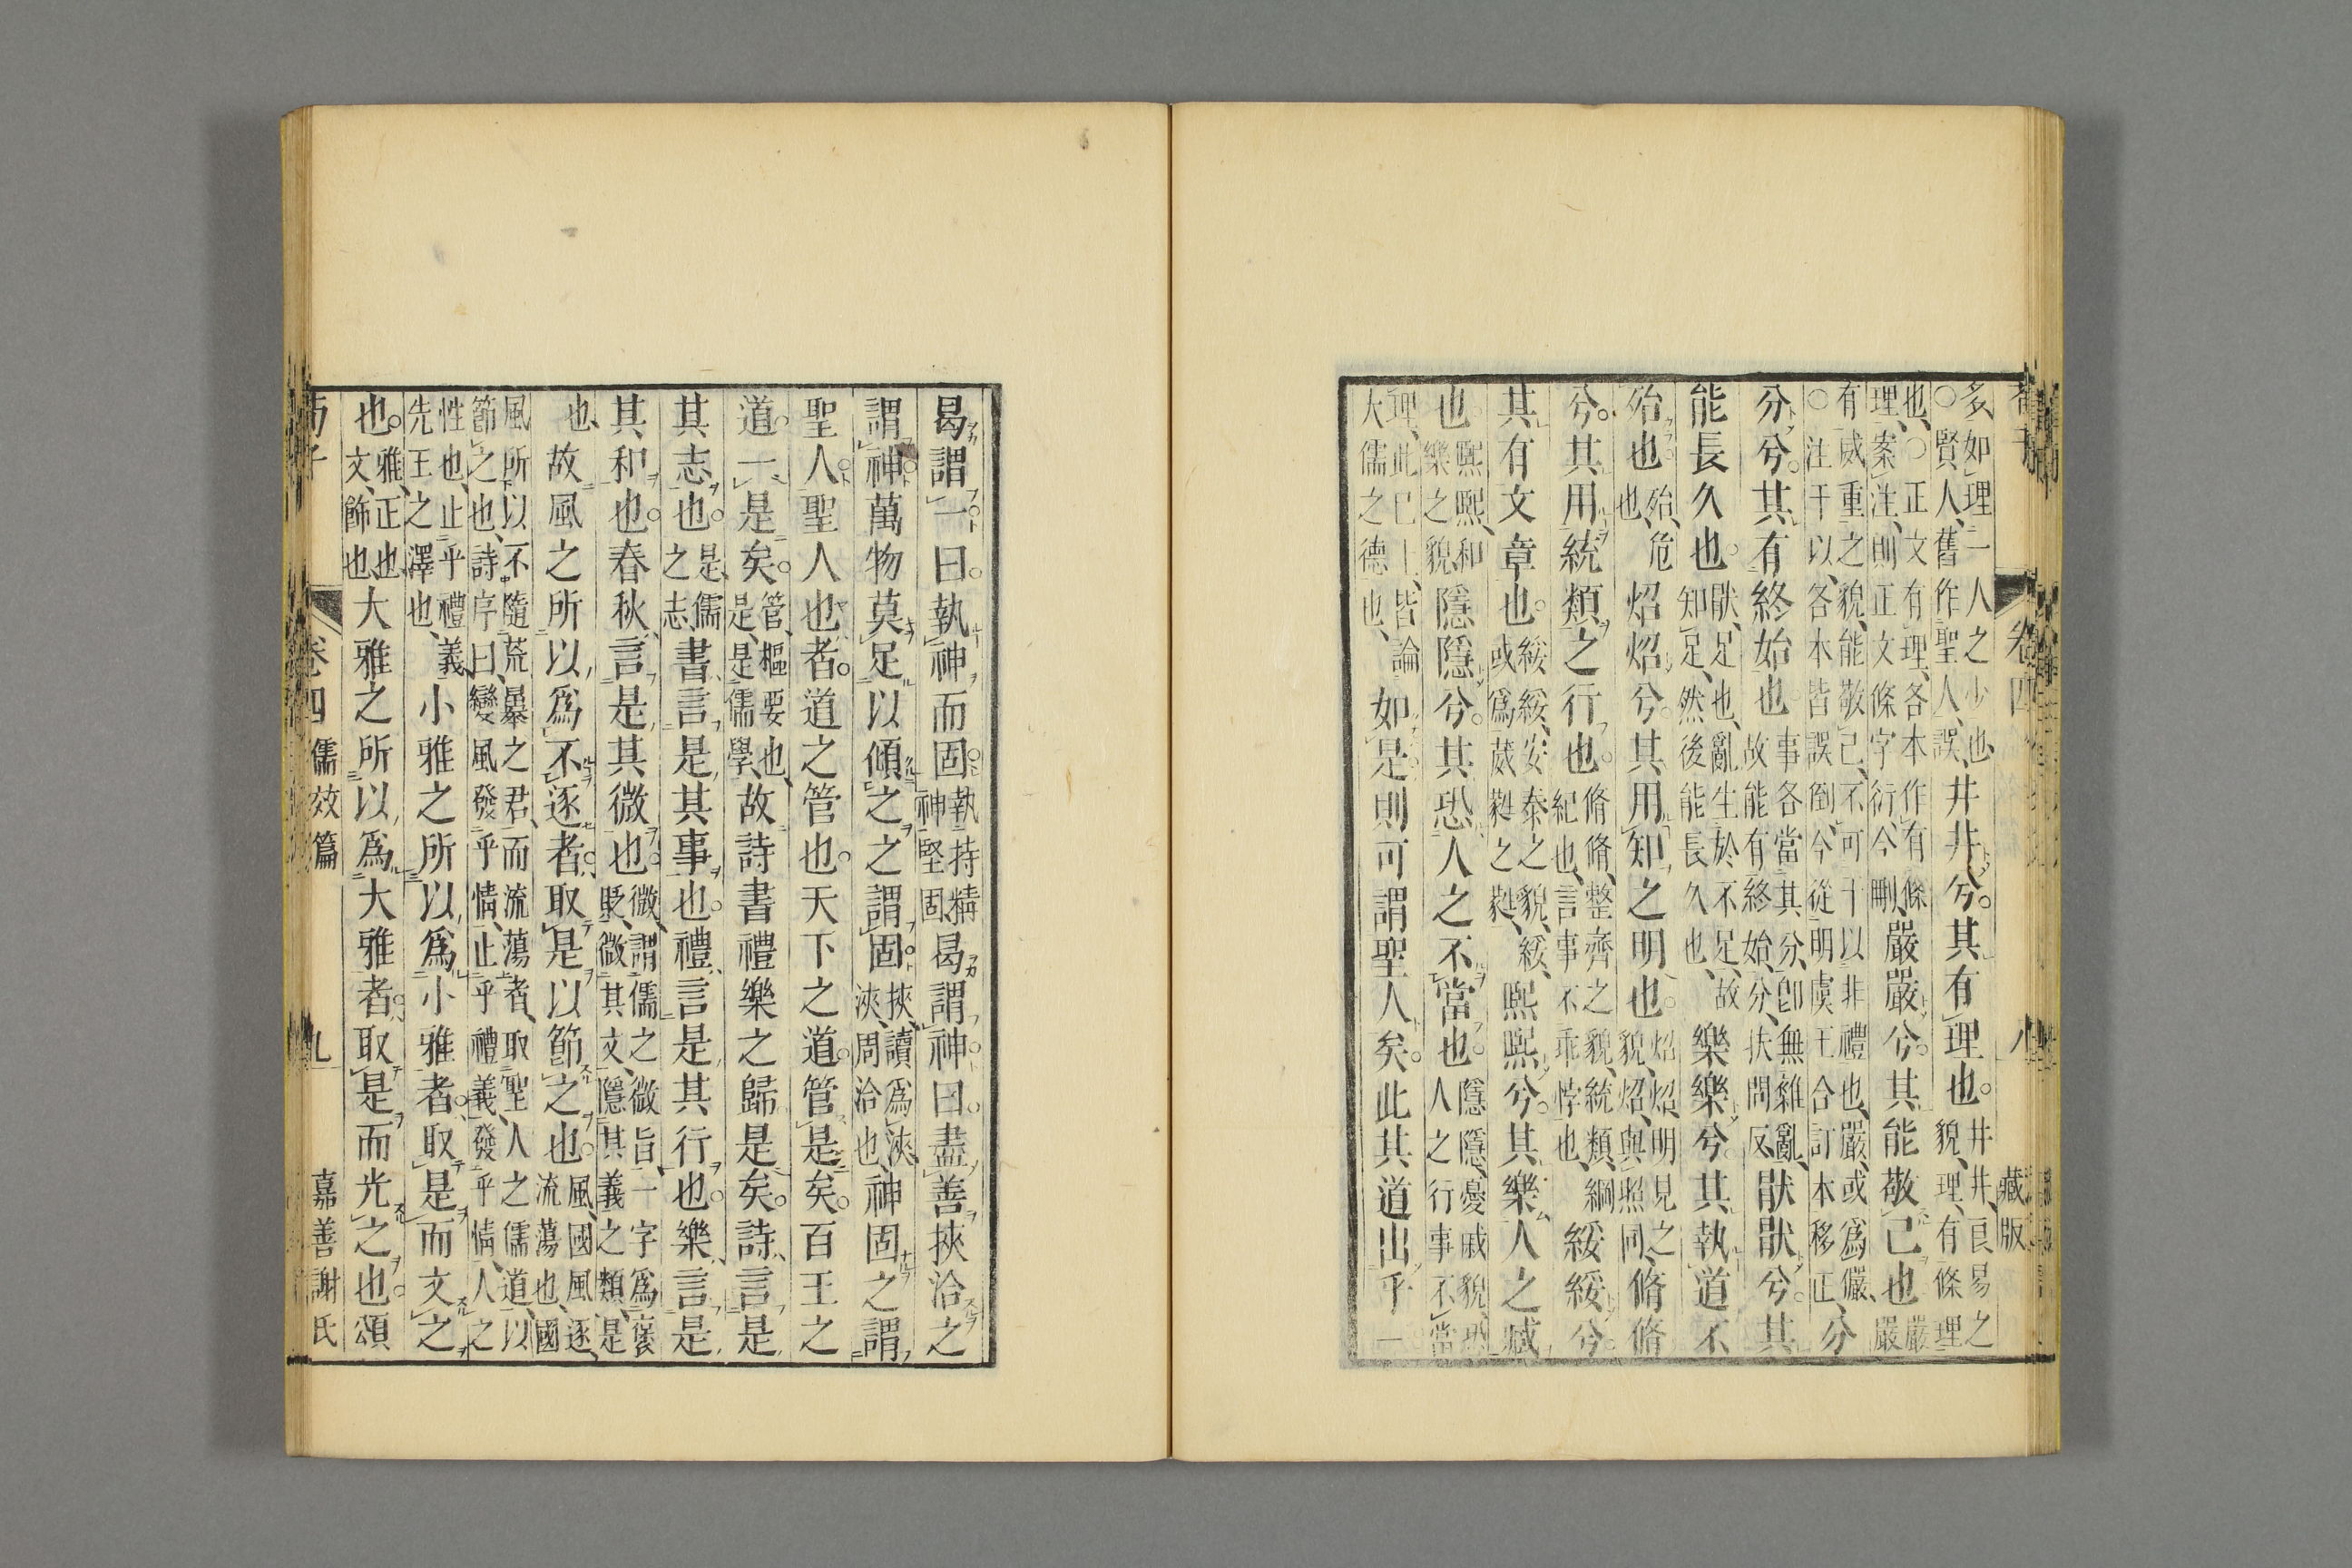 荀子 卷四 八 藏版
多、如理一人之少也○賢人、舊作聖人、誤、井井兮。其有理也。井井、良易之貌、理、有條理
也、○正文有理、各本作有條理、案注、則正文條字衍、今刪、嚴嚴兮。其能敬己也嚴嚴
有威重之貌、能敬己、不可干以非禮也、嚴或爲儼、○注干以、各本皆誤倒、今從明虞王合訂本移正、分
分兮。其有終始也事各當其分、卽無雜亂、故能有終始、分、扶問反、猒猒兮。其
能長久也。猒足也、亂生於不足、故知足、然後能長久也、樂樂兮。其執道不
殆也。殆、危也、炤炤兮。其用知之明也。炤炤、明見之貌、炤、與照同、脩脩
兮。其用統類之行也。脩脩、整齊之貌、統類、綱紀也、言事不乖悖也、綏綏兮。
其有文章也。綏綏、安泰之貌、綏、或爲葳蕤之蕤、熙熙兮。其樂人之臧
也。熙熙、和樂之貌、隱隱兮。其恐人之不當也。隱隱、憂戚貌、恐人之行事不當
理、此已上、皆論大儒之德也、如是則可謂聖人矣。此其道出乎一
曷謂一曰。執神而固。執持精神堅固、曷謂神曰。盡善挾洽之
謂神萬物莫足以傾之之謂固。挾、讀爲浹、浹、周洽也、神固之謂
聖人聖人也者。道之管也。天下之道。管是矣。百王之
道。一是矣。管、樞要也、是、是儒學、故詩書禮樂之歸是矣。詩、言是
其志也。是、儒之志、書言是其事也。禮、言是其行也。樂、言是
其和也。春秋、言是其微也。微、謂儒之微旨、一字爲褒貶、微其文、隱其義之類、是
也、故風之所以爲不逐者。取是以節之也。風、國風、逐、流蕩也、國
風所以不隨荒暴之君、而流蕩者、取聖人之儒道、以節之也、詩序曰、變風發乎情、止乎禮義、發乎情、人之
性也、止乎禮義先王之澤也、小雅之所以爲小雅者。取是而文之
也。雅、正也、文、飾也、大雅之所以爲大雅者。取是而光之也。頌
荀子 卷四 儒效篇 九 嘉善謝氏